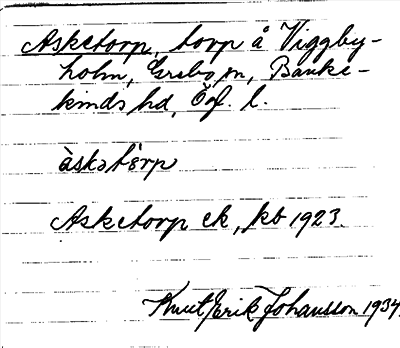 Asketorp, torp å Viggby-
holm, Grebo sn, Banke-
kinds hd, Ög. l.
àskətòrp
Asketorp ek, kb 1923.
Knut Erik Johansson 1934.